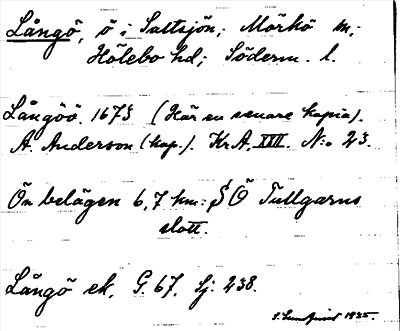 Långö, ö i Saltsjön; Mörkö sn;
Hölebo hd; Söderm. l.
Långöö. 1673 (Här en senare kopia).
A. Anderson (kop.). Kr.A. XXII. N:o 23.
Ön belägen 6,7 km: S Ö Tullgarns
slott.
Långö ek. G. 67. Sj: 238.
S. Lundquist 1935.